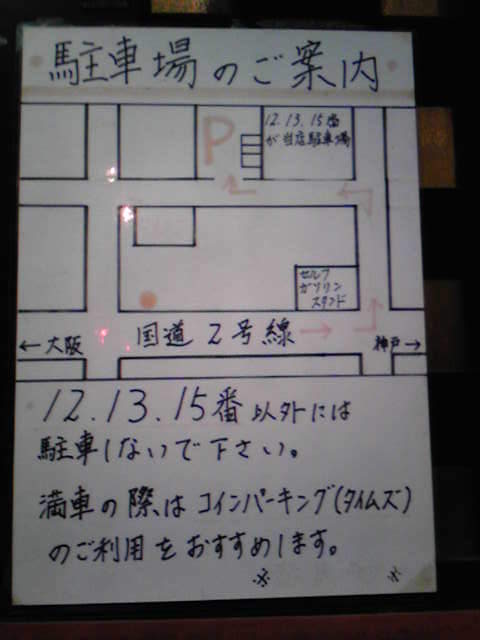 駐車場のご案内
12.13.15番
が当店駐車場
P
セルフ
ガソリン
スタンド
←大阪
国道2号線
神戸→
12.13.15番以外には
駐車しないで下さい。
満車の際はコインパーキング(タイムズ)
のご利用をおすすめします。
※